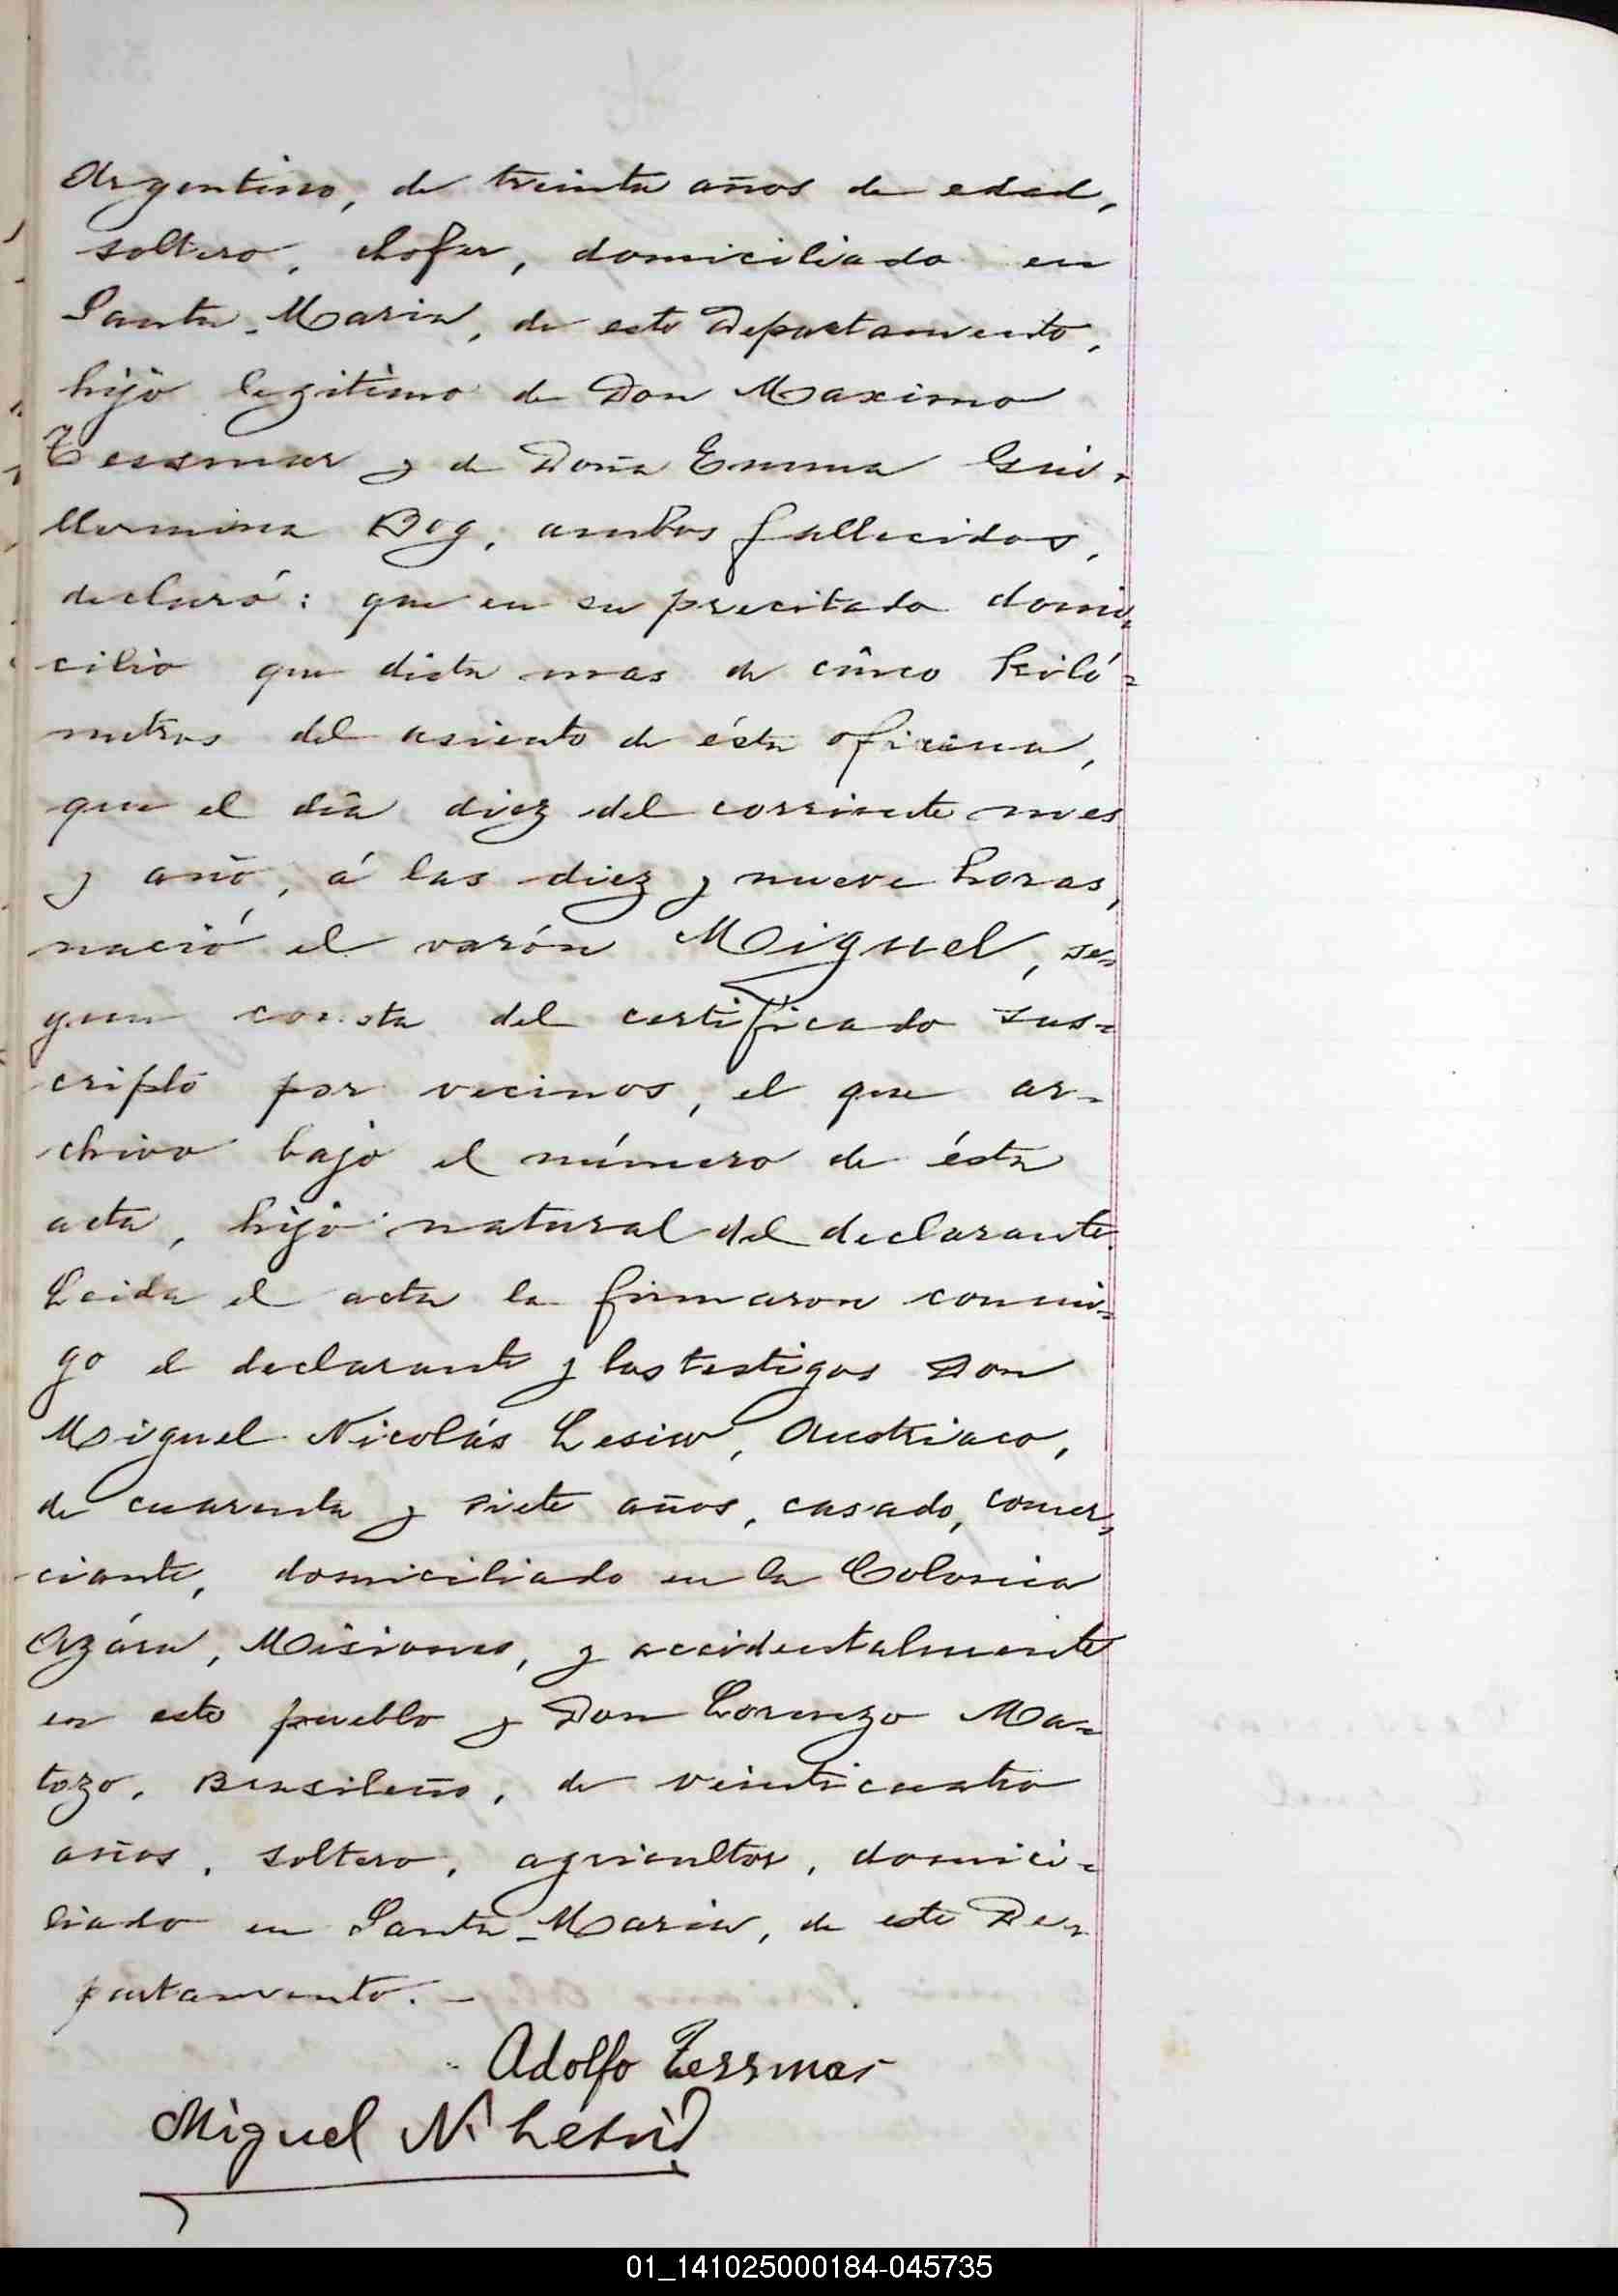 Argentino, de treinta años de edad,
soltero, chofer, domiciliado en
Santa-Maria, de este Departamento,
hijo legitimo de Don Maximo
Tessmer y de Doña Emma Gui-
llermina Bog, ambos fallecidos,
declaró: que en su precitado domi-
cilio que dista mas de cinco kiló-
metros del asiento de ésta oficina,
que el día diez del corriente mes
y año, á las diez y nueve horas,
nació el varón Miguel, se-
gun consta del certificado sus-
cripto por vecinos, el que ar-
chivo bajo el número de ésta
acta, hijo natural del declarante.
Leida el acta la firmaron conmi-
go el declarante y los testigos Don
Miguel Nicolás Lesiw, Austriaco,
de cuarenta y siete años, casado, comer-
ciante, domiciliado en la Colonia
Azára, Misiones, y accidentalmente
en este pueblo y Don Lorenzo Ma-
tozo, Brasileño, de veinticuatro
años, soltero, agricultor, domici-
liado en Santa-Maria, de este De-
partamento.-
Adolfo Tessmer
Miguel N.
01_141025000184-045735